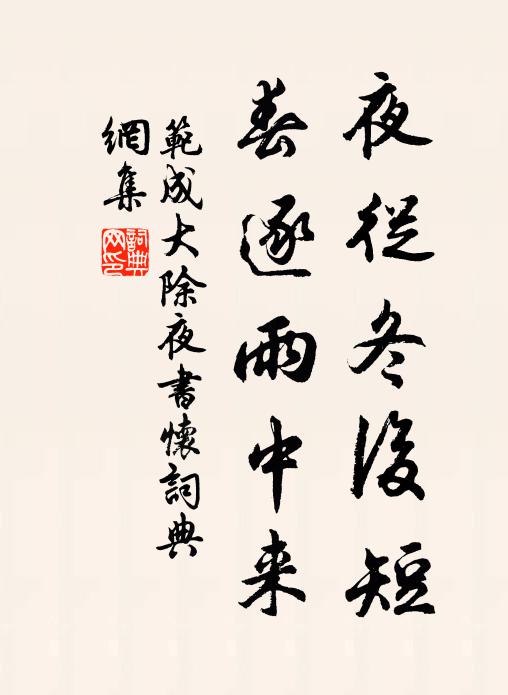 夜從冬後短
春逐雨中来
範成大除夜書懷詞典
網集
詞典
网印